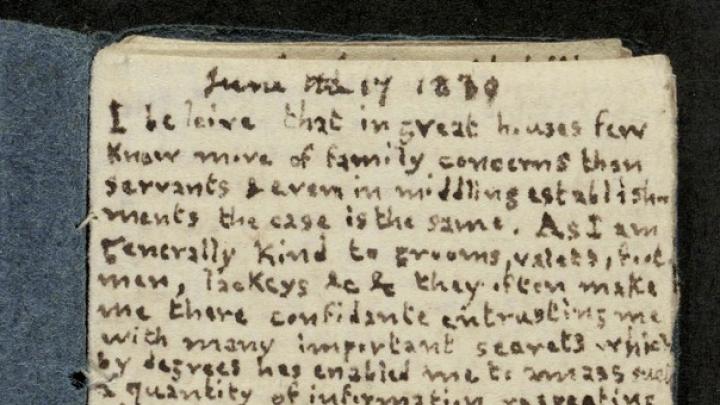 June the 17 1830
I beleive that in great houses few
Know more of family concerns than
servants & even in middling establish-
ments the case is the same. As I am
generally Kind to grooms, valets, foot
men, lackeys &c &c they often make
me there confidante entrusting me
with many important secrets which
by degrees has enabled me to amass such
a quantity of information respecting